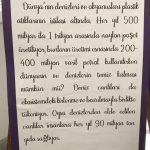 Dünya'nın denizleri ve okyanusları plastik
atıklarının istilası altında. Her yıl 500
milyar ila 1 trilyon arasında naylon poşet
üretiliyor, bunların üretimi esnasında 200-
400 milyon varil petrol kullanılırken
dünyanın ve denizlerin temiz kalması
mümkün mü? Deniz canlıları da
ekosistemdeki kirlenme ve bozulmayla birlikte
tükeniyor. Oysa denizlerden elde edilen
canlılar insanlara her yıl 90 milyar ton
gıda sağlıyor.